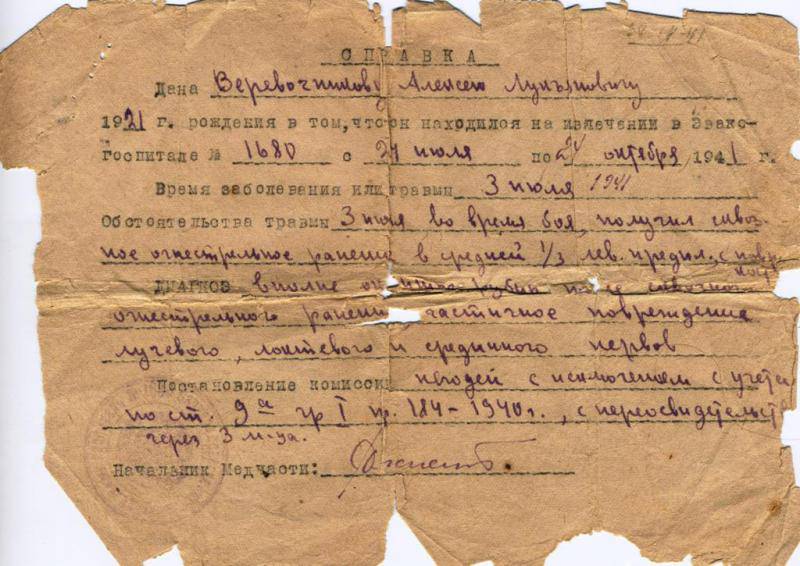 СПРАВКА
Дана Веревочникову Алексею Лукьяновичу
1921 г. рождения в том, что он находился на излечении в Эвако-
госпитале № 1680 с 27 июля по 24 октября 1941 г.
Время заболевания или травмы 3 июля 1941
Обстоятельства травмы 3 июля во время боя, получил сквоз-
ное огнестрельное ранение в средней 1/3 лев. предпл., с повр.
ДИАГНОЗ вполне после сквозного
огнестрельного ранения частичное повреждение
лучевого, локтевого и срединного нервов
Постановление комиссии негоден с исключением с учета
по ст. 9а гр I пр. 184-1940г., с переосвидетельств
через 3 м-ца.
Начальник Медчасти: